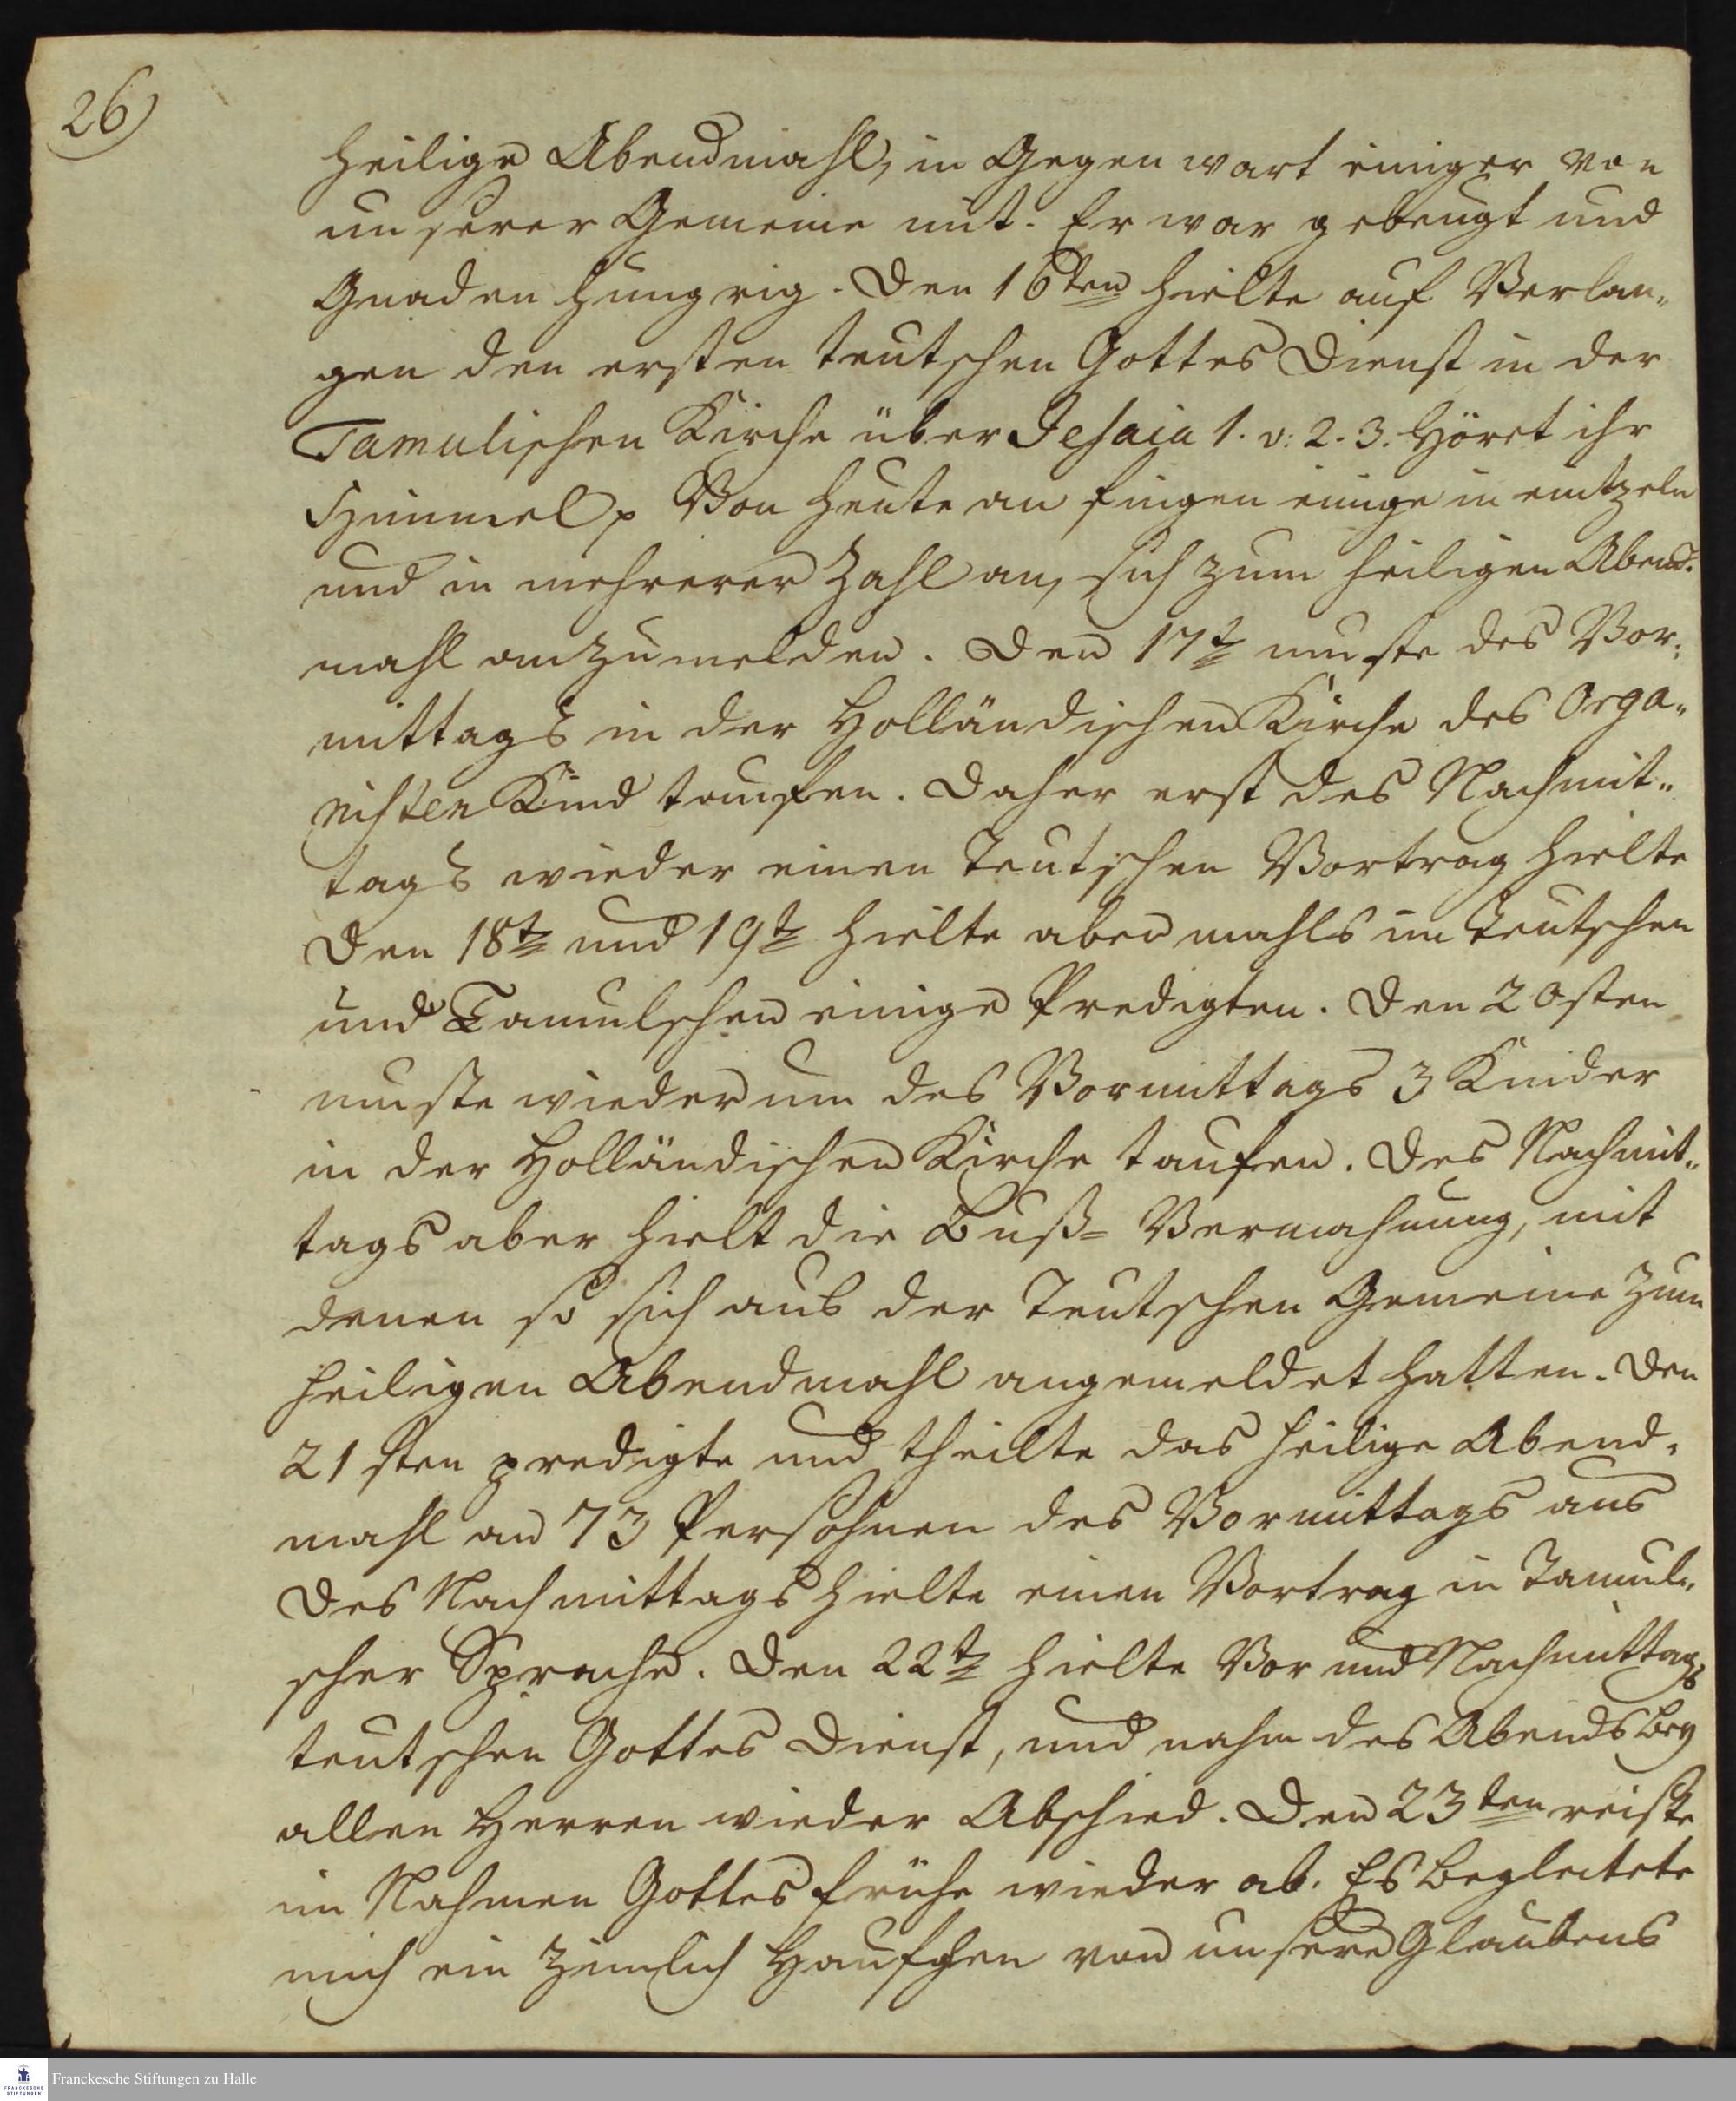 26)
heilige Abendmahl, in Gegenwart einiger von
unserer Gemeine mit. Er war gebeugt und
Gnaden hungrig. Den 16ten hielte auf Verlan„
gen den ersten teutschen Gottes Dienst in der
Tamulischen Kirche über Jesaia 1. v: 2. 3. Höret ihr
Himmel p Von heute an fingen einige in eintzeln
und in mehrerer Zahl an, sich zum heiligen Abend.
mahl anzumelden. Den 17t muste des Vor„
mittags in der Holländischen Kirche des Orga„
nisten Kind taufen. Daher erst des Nachmit„
tags wieder einen Teutschen Vortrag hielte
Den 18t und 19t hielte abermahls im Teutschen
und Tamulschen einige Predigten. Den 20sten
muste wiederum des Vormittags 3 Kinder
in der Holländischen Kirche taufen. Des Nachmit„
tags aber hielt die Buß= Vermahnung, mit
denen so sich aus der Teutschen Gemeine zum
heiligen Abendmahl angemeldet hatten. Den
21sten predigte und theilte das heilige Abend„
mahl an 73 Persohnen des Vormittags aus
Des Nachmittags hielte einen Vortrag in Tamul„
scher Sprache. Den 22t hielte Vor und Nachmittags
teutschen Gottes Dienst, und nahm des Abends bey
allen Herren wieder Abschied. Den 23ten reiste
im Nahmen Gottes frühe wieder ab. Es begleitete
mich ein zimlich Haufchen von unsere Glaubens
Franckesche Stiftungen zu Halle
FRANCKESCHE
STIFTUNGEN